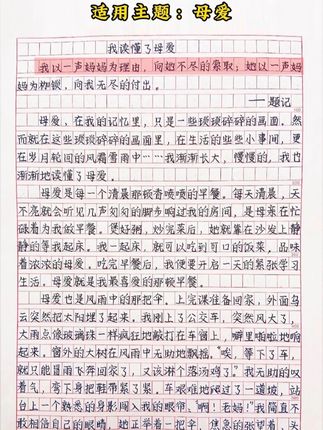 适用主题：母爱
我读懂了母爱
我以一声妈妈为理由，向她不尽的索取；她以一声妈
妈为枷锁，向我无尽的付出。
——题记
母爱、在我的记忆里，只是一些琐琐碎碎的画面。然
而就在这些琐琐碎碎的画面里，在生活的些些小事间，更
在岁月轮回的风霜雪雨中……我渐渐长大，慢慢的，我也
渐渐地读懂了母爱。
母爱是每一个清晨那顿香喷喷的早餐。每天清晨，天
不亮就会听见几声匆匆的脚步响过我的房间，是母亲在忙
碌着为我做早餐。煲好粥，炒完菜后，她就靠在沙发上静
静的等我起床。我一起床，就可以吃到可口的饭菜，品味
着浓浓的母爱。吃完早餐后，我便要开启一天的紧张学习
生活。母爱就是我最喜爱的那顿早餐。
母爱也是风雨中的那把伞。上完课准备回家，外面乌
云突然把大阳埋了起来。我刚上了公交车，突然风大了，
大雨点像玻璃珠一样疯狂地敲打在车窗上，噼里啪啦地响
起来，窗外的大树在风雨中无助地飘摇。“唉，等下了车，
就只能冒雨飞奔回家了，又该淋个落汤鸡了。”我无助的叹
着气，弯下身把鞋带紧了紧。车艰难地爬过了一道坡，站
台上一个熟悉的身影闯入我的眼帘。“啊！老妈！”我简直不
敢相信自己的眼睛，她正举着一把伞，焦急的张望着，头